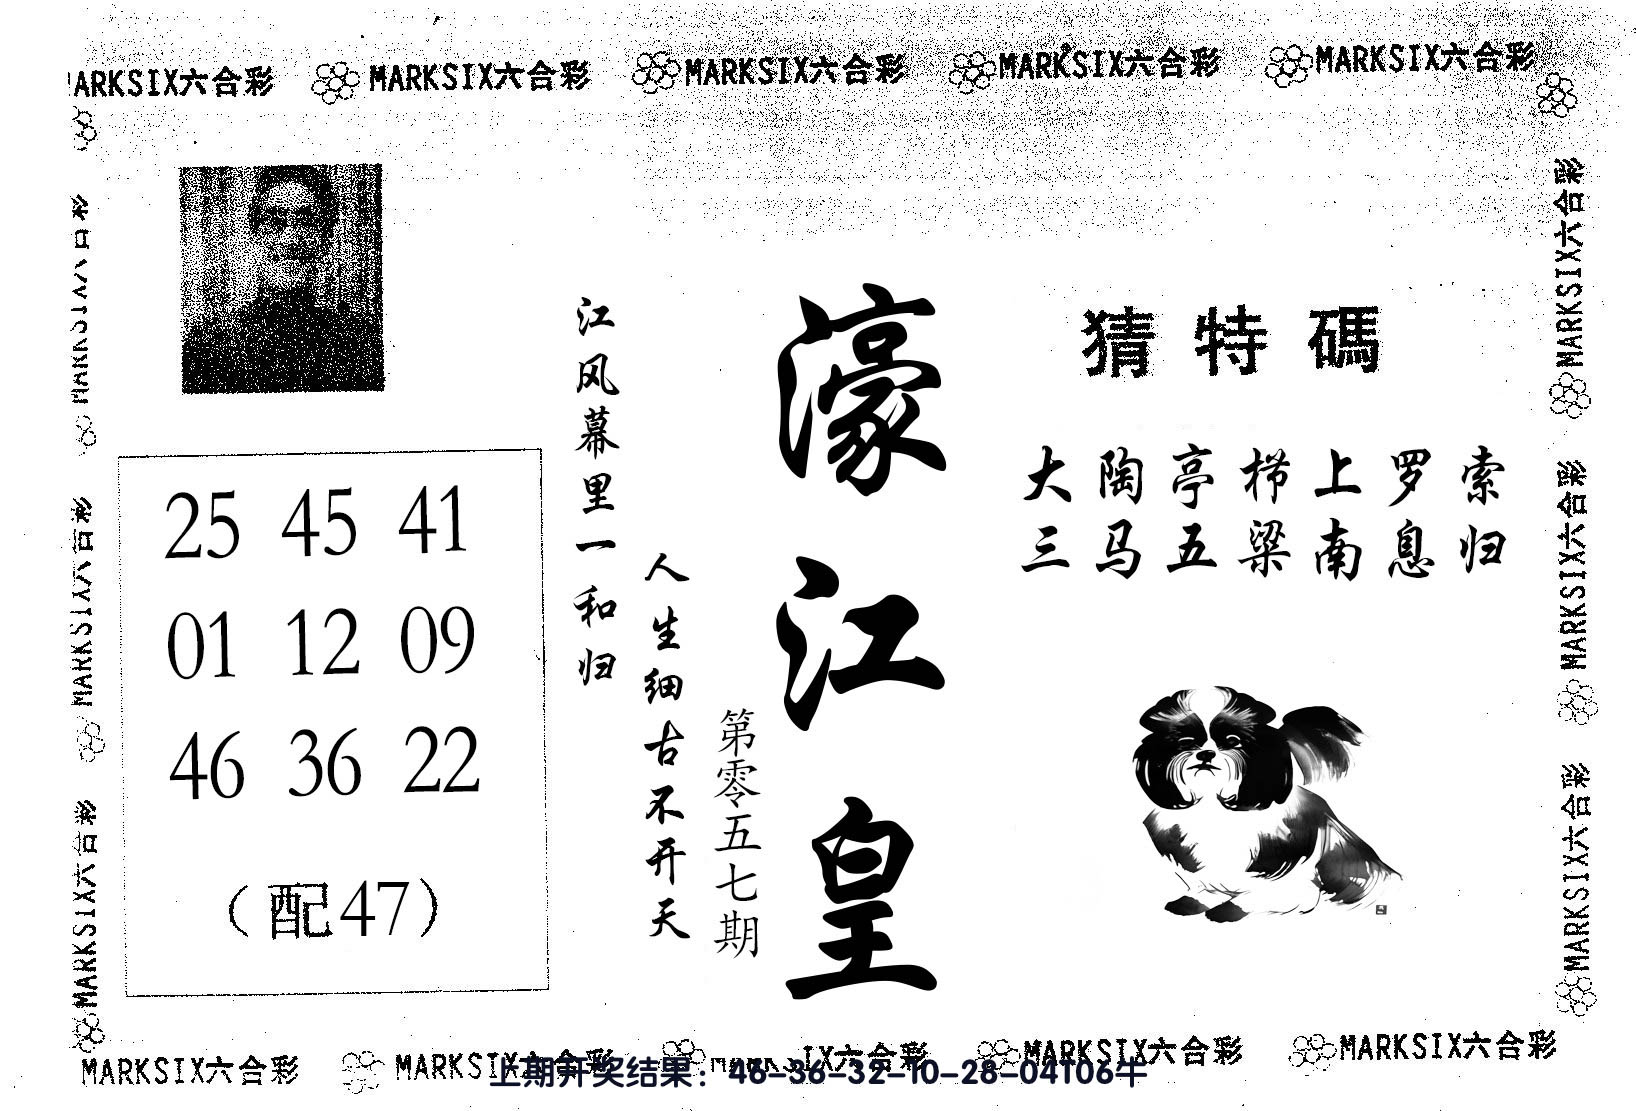 MARKSIX六合彩 MARKSIX六合彩 MARKSIX六合彩 MARKSIX六合彩
MARKSIX六合彩
MARKSIX六合彩
MARKSIX六合彩
MARKSIX六合彩
25 45 41
01 12 09
46 36 22
（配47）
江风幕里一和归
人生细古不开天
第零五七期
濠江皇
猜特碼
大陶亭梯上罗索
三马五梁南息归
MARKSIX六合彩
MARKSIX六合彩
MARKSIX六合彩
MARKSIX六合彩 MARKSIX六合彩 MARKSIX六合彩 MARKSIX六合彩
上期开奖结果：46-36-32-10-28-04T06牛